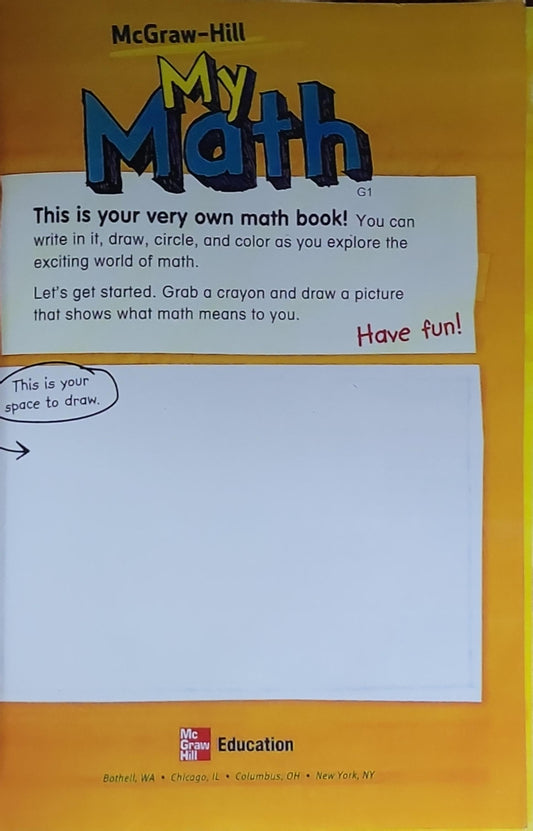 McGraw-Hill
My
Math
G1
This is your very own math book! You can
write in it, draw, circle, and color as you explore the
exciting world of math.
Let's get started. Grab a crayon and draw a picture
that shows what math means to you.
Have fun!
This is your
space to draw.
Mc
Graw
Hill
Education
Bothell, WA • Chicago, IL • Columbus, OH • New York, NY